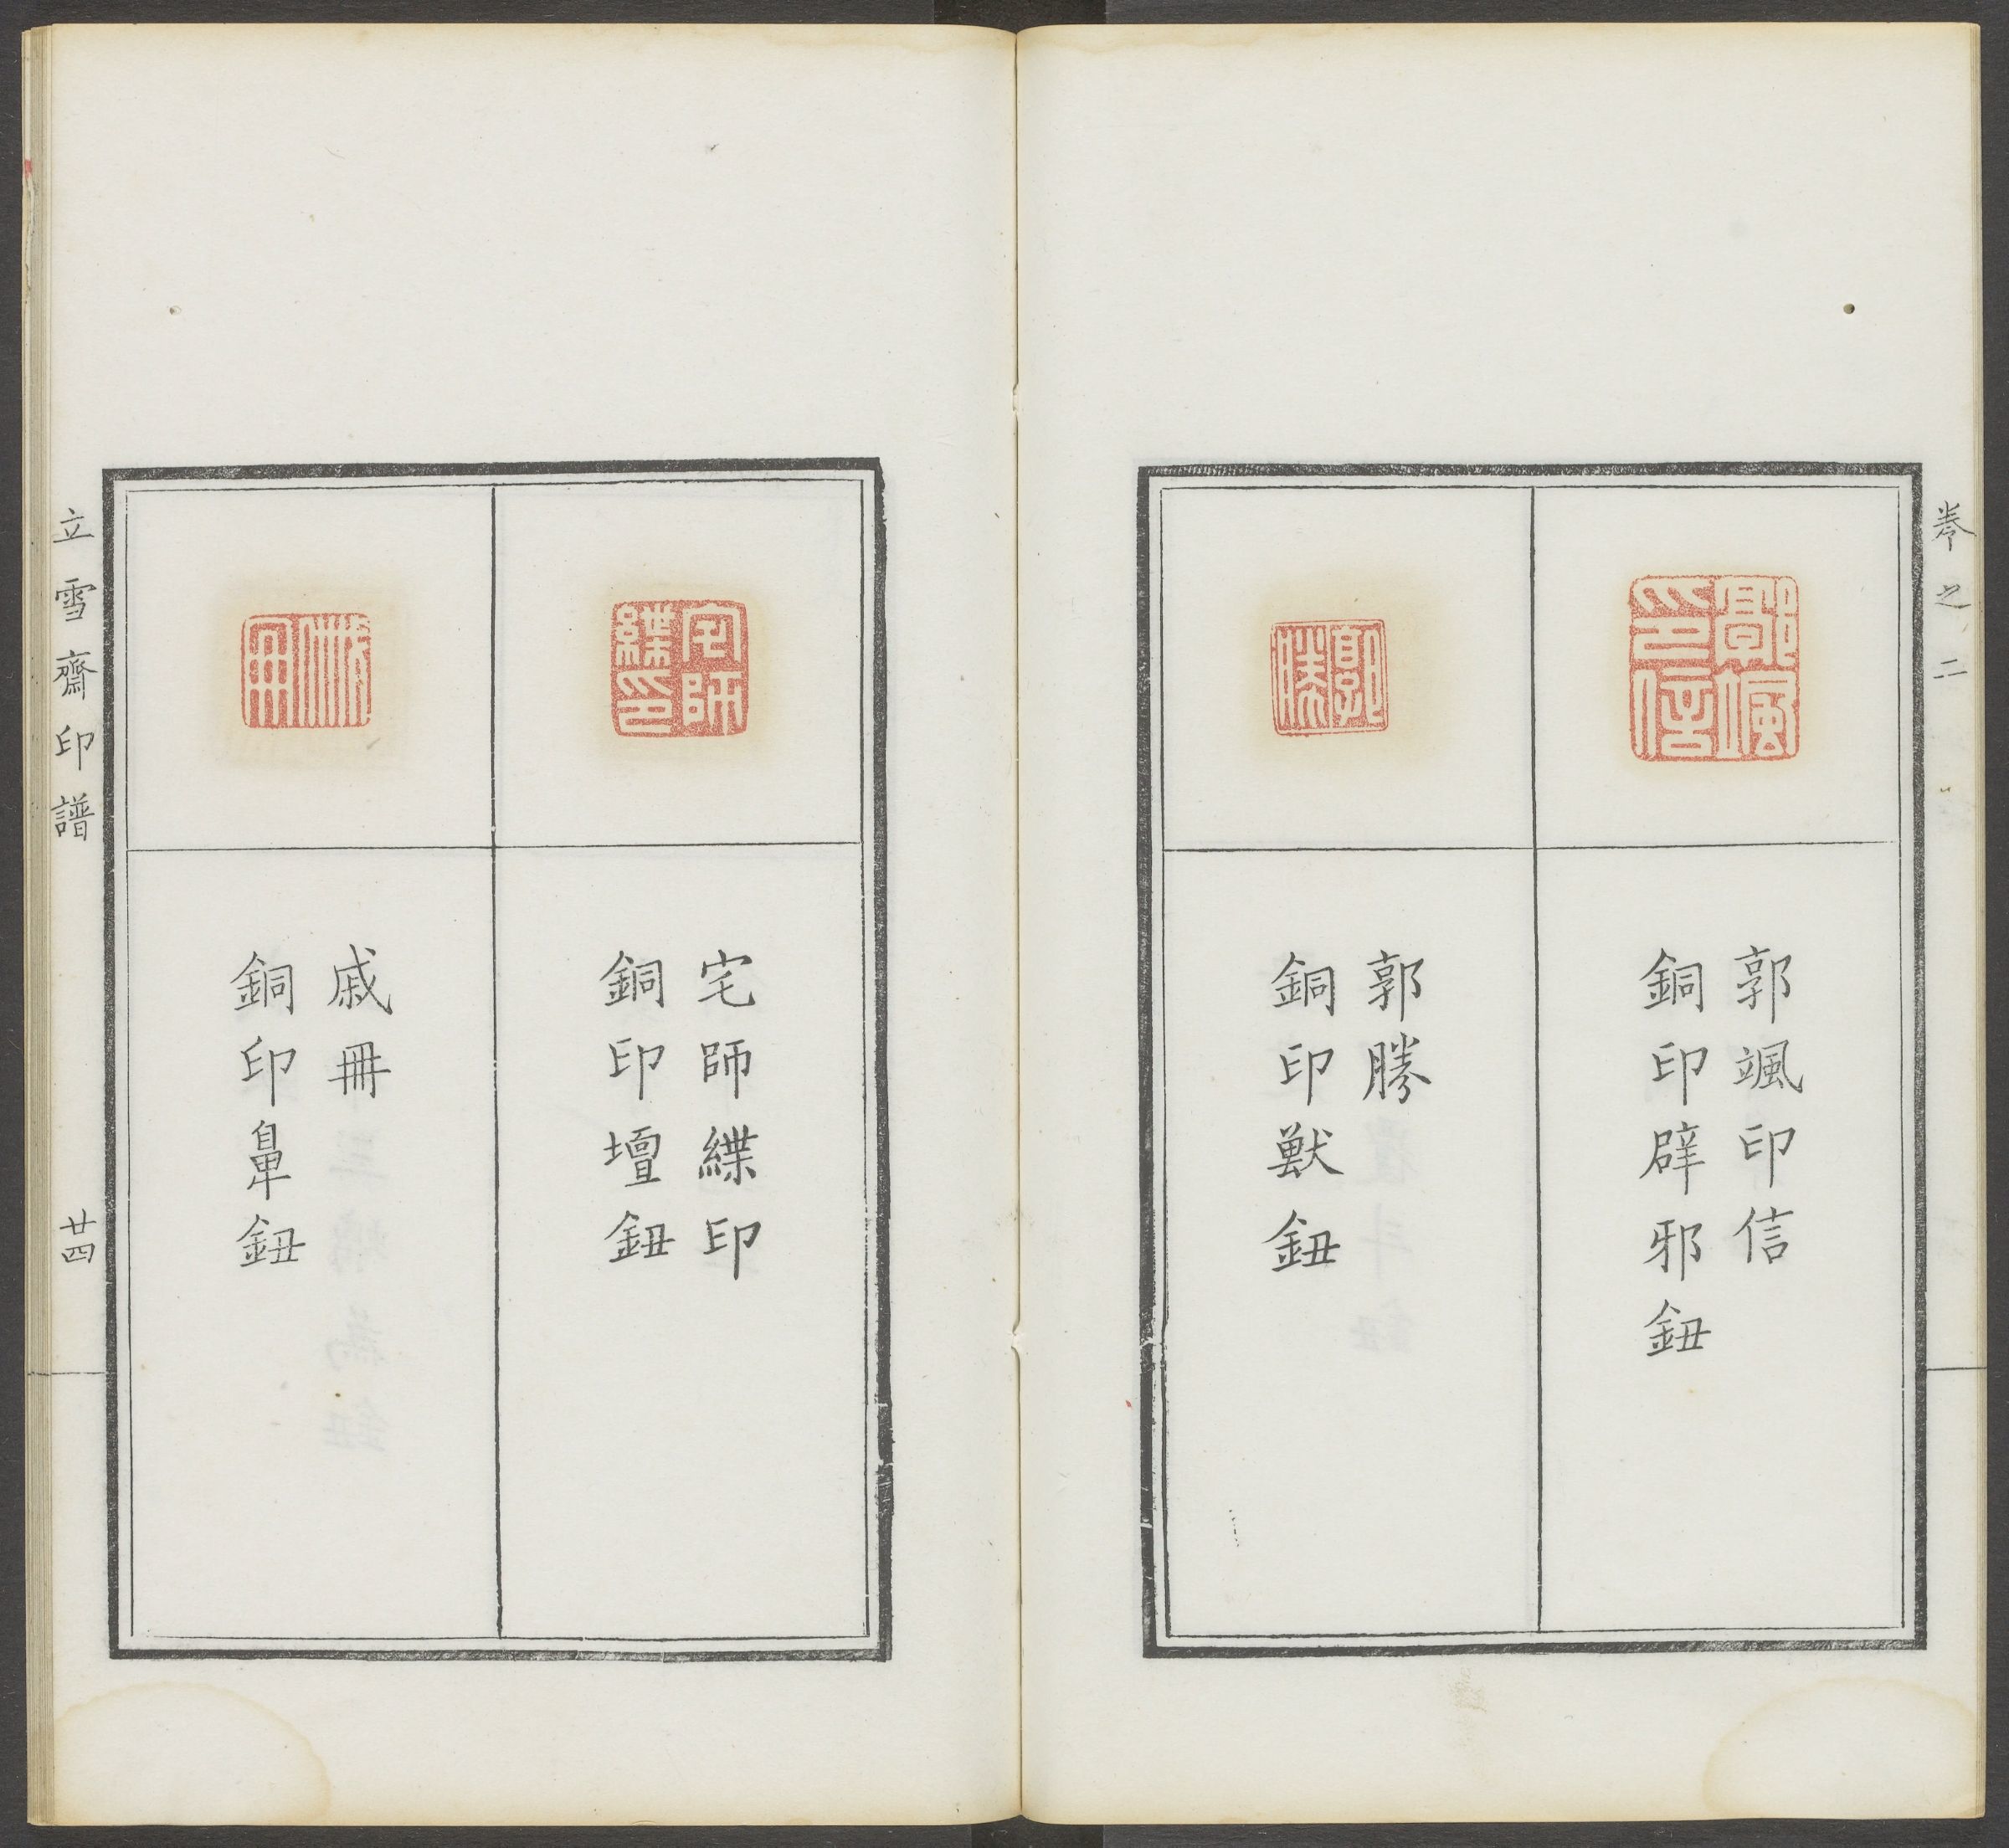 卷之二
郭颯印信
銅印辟邪鈕
郭勝
銅印獸鈕
宅師緤印
銅印壇鈕
戚冊
銅印鼻鈕
立雪齋印譜
廿四